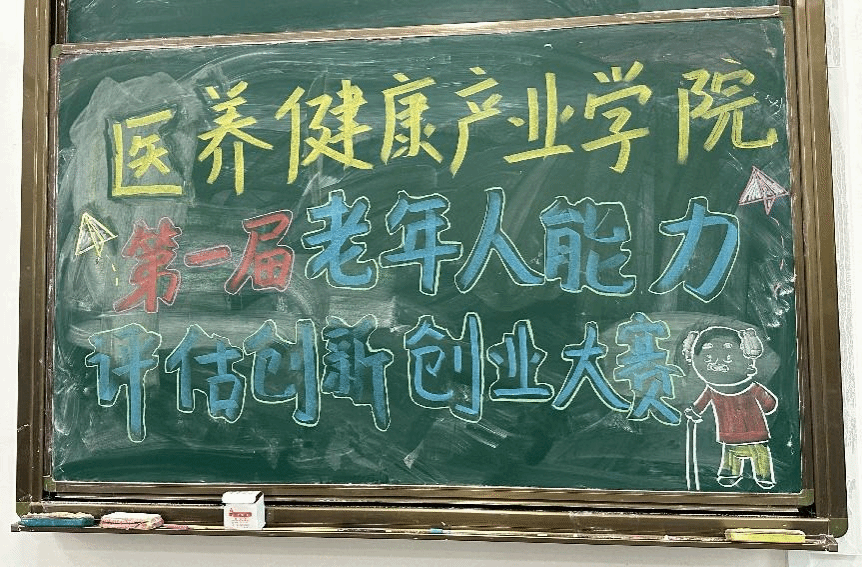 医养健康产业学院
第一届老年人能力
评估创新创业大赛